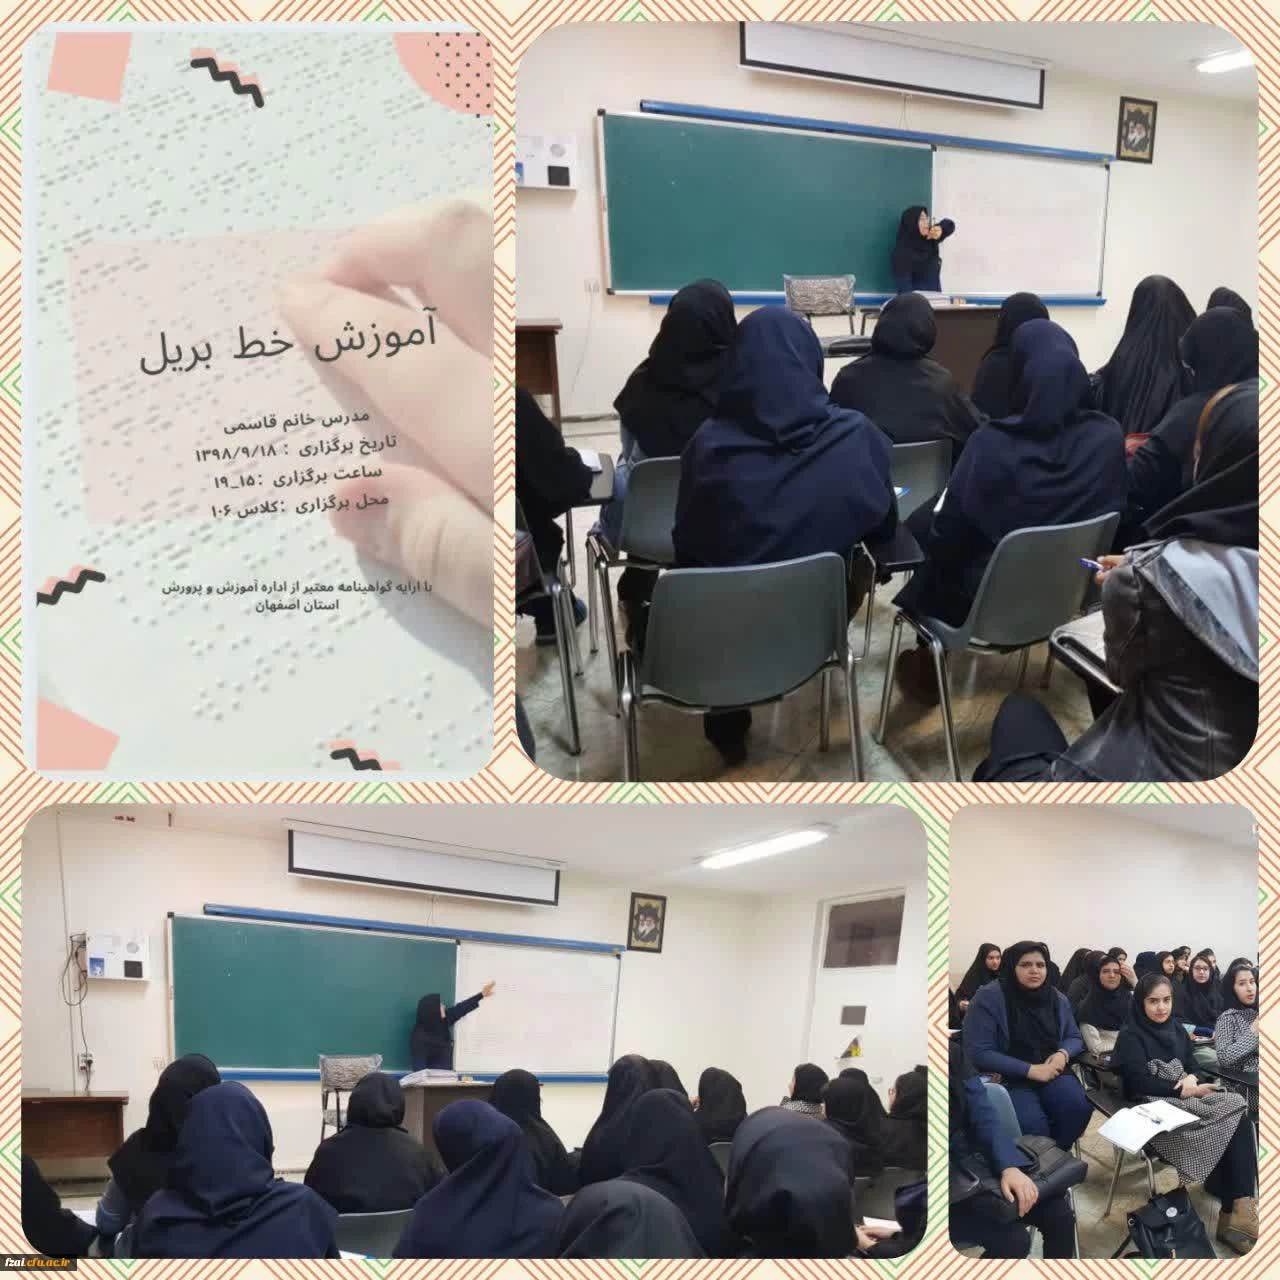 آموزش خط بریل
مدرس خانم قاسمی
تاریخ برگزاری : ۱۳۹۸/۹/۱۸
ساعت برگزاری :۱۵_۱۹
محل برگزاری :کلاس ۱۰۶
با ارایه گواهینامه معتبر از اداره آموزش و پرورش
استان اصفهان
fzai.cfu.ac.ir